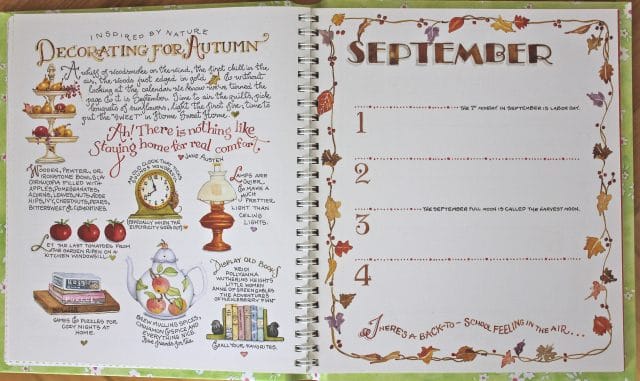 INSPIRED BY NATURE
DECORATING FOR AUTUMN
A whiff of woodsmoke on the wind, the first chill in the
air, the woods just edged in gold & so without
looking at the calendar we know we've turned the
page & it is September. Time to air the quilts, pick
bouquets of sunflowers, light the first fire; time to
put the "SWEET" in Home Sweet Home.
Ah! There is nothing like
Staying home for real comfort.
JANE AUSTEN
WOODEN, PEWTER, OR
IRONSTONE BOWLS, &
CORNUCOPIA FILLED WITH
APPLES, POMEGRANATES,
ACORNS, LEAVES, NUTS, ROSE
HIPS, IVY, CHESTNUTS, PEARS,
BITTERSWEET & CLEMENTINES.
AN OLD CLOCK THAT TICKS
IS A WONDERFUL
ESPECIALLY WHEN THE
ELECTRICITY GOES OUT
LAMPS ARE
COZIER,
& MAKE A
MUCH
PRETTIER
LIGHT THAN
CEILING
LIGHTS.
LET THE LAST TOMATOES FROM
THE GARDEN RIPEN ON A
KITCHEN WINDOWSILL.
GAMES & PUZZLES FOR
COZY NIGHTS AT
HOME.
BREW MULLING SPICES,
CINNAMON & SPICE AND
EVERYTHING NICE.
Have friends for tea.
DISPLAY OLD BOOKS
HEIDI
POLLYANNA
WUTHERING HEIGHTS
LITTLE WOMEN
ANNE OF GREEN GABLES
THE ADVENTURES
OF HUCKLEBERRY FINN
& ALL YOUR FAVORITES.
SEPTEMBER
1 THE 1ST MONDAY IN SEPTEMBER IS LABOR DAY.
2
3 THE SEPTEMBER FULL MOON IS CALLED THE HARVEST MOON.
4
THERE'S A BACK-TO-SCHOOL FEELING IN THE AIR...